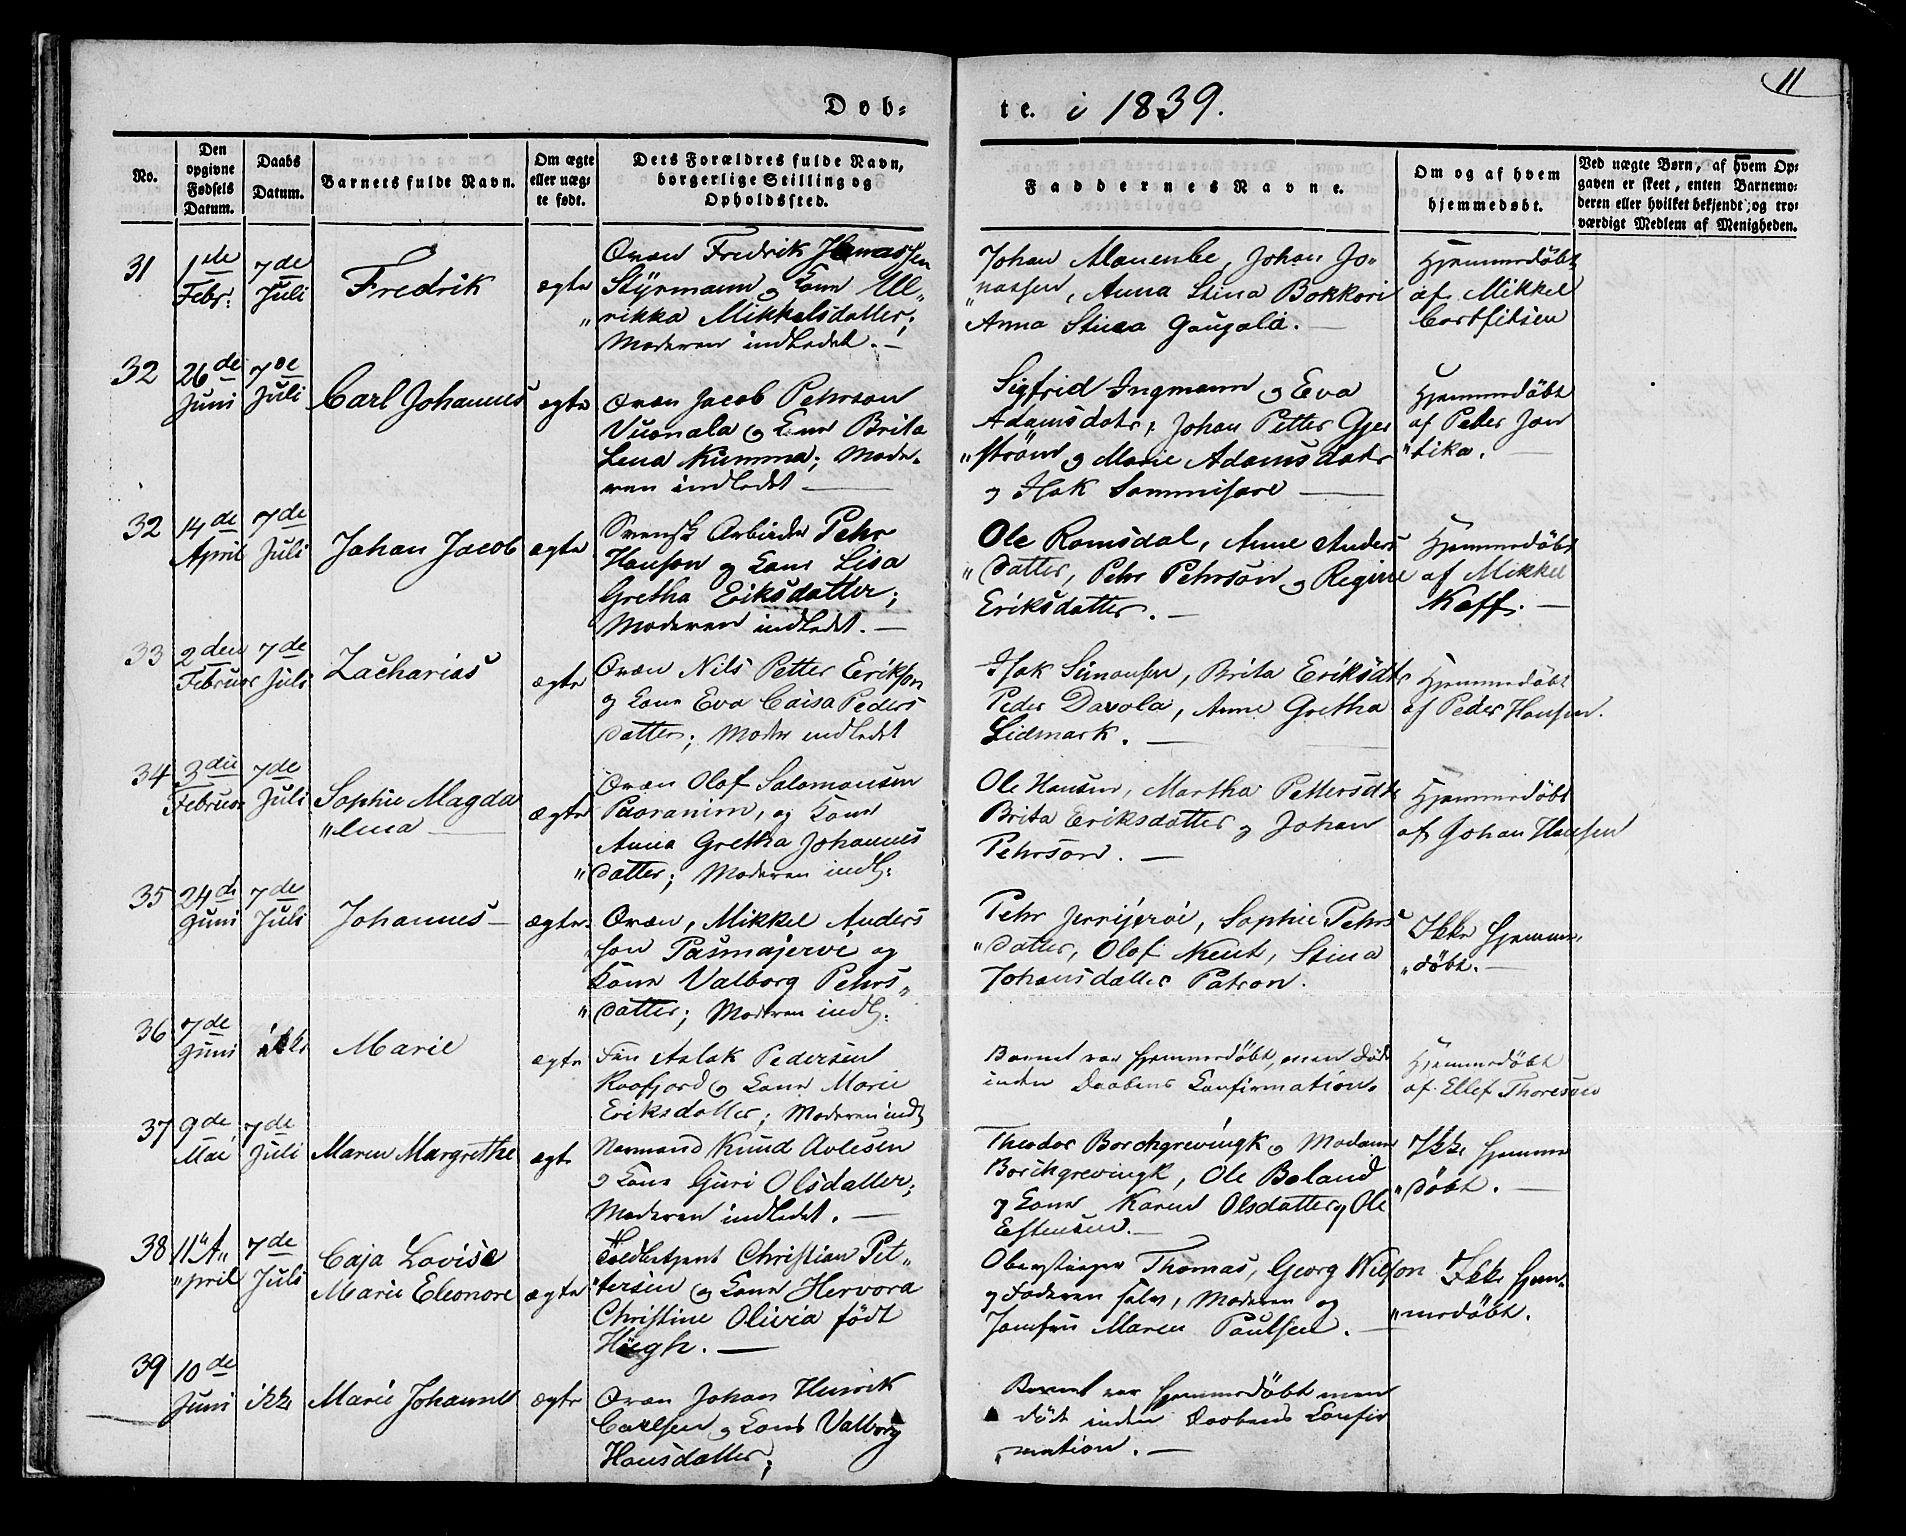 11
Døb-
te. i 1839.
No.
Den opgivne Fødsels Datum.
Daabs Datum.
Barnets fulde Navn.
Om ægte eller uægte født.
Dets Forældres fulde Navn, borgerlige Stilling og Opholdssted.
Faddernes Navne.
Om og af hvem hjemmedøbt.
Ved uægte Børn, af hvem Opgaven er skeet, enten Barnemoderen eller hvilket bekjendt, og troværdigt Medlem af Menigheden.
31
1de Febr.
7de Juli
Fredrik
ægte
Qvæn Fredrik Jonassen
Styrmann og Kone Ul„
„rikka Mikkelsdatter;
Moderen indledet. —
Johan Mauenbe, Johan Jo-
„nassen, Anna Stina Bokkori
Anna Stina Gaupala. —
Hjemmedøbt
af Mikkel
32
26de Juni
7de Juli
Carl Johannes
ægte
Qvæn Jacob Pehrson
Vuonala og Kone Brita
Lena Kumma; Mode-
ren indledet —
Sigfrid Ingmann og Eva
Adamsdatr, Johan Petter Gjer
„ström og Marie Adamsdatr
og Isak Sammisare —
Hjemmedøbt
af Peder Jon
„tika. —
32
14de April
7de Juli
Johan Jacob
ægte
Svensk Arbeider Pehr
Hanson og Kone Lisa
Gretha Eriksdatter;
Moderen indledet. —
Ole Romsdal, Anne Anders
„datter, Pehr Pehrson og Regine
Eriksdatter. —
Hjemmedøbt
af Mikkel
Neff. —
33
2den Februar
7de Juli
Zacharias
ægte
Qvæn Nils Petter Erikson
og Kone Eva Caisa Peders
datter; Moder indledet
Isak Simonsen, Brita Eriksdtr
Peder Davola, Anne Gretha
Lidmark. —
Hjemmedøbt
af Peder Hansen.
34
3die Februar
7de Juli
Sophie Magda
„lena —
ægte
Qvæn Olof Salomonsen
Paoranim, og Kone
Anna Gretha Johannes
„datter; Moderen indl:
Ole Hansen, Martha Pettersdtr
Brita Eriksdatter og Johan
Pehrson. —
Hjemmedøbt
af Johan Hansen
35
24de Juni
7de Juli
Johannes —
ægte.
Qvæn, Mikkel Anders
son Pasmajervi og
Kone Valborg Pehrs„
„datter; Moderen indl:
Pehr Jerrijeroi, Sophie Pehrs
„datter, Olof Kent, Stina
Johansdatter Patron.
Ikke hjemme„
„døbt. —
36
7de Juni
ikke
Marie
ægte
Fin Aslak Pedersen
Raafjord og Kone Marie
Eriksdatter; Moderen indl
Barnet var hjemmedøbt, men døde
inden Daabens Confirmation.
Hjemmedøbt
af Ellef Thoresen
37
9de Mai
7de Juli
Maren Margrethe
ægte
Normand Knud Avlesen
og Kone Guri Olsdatter;
Moderen indledet. —
Theodor Borchgrevingk og Madame
Borchgrevingk, Ole Boland
og Kone Karen Olsdatter og Ole
Estensen. —
Ikke hjemme
„døbt. —
38
11te A„
„pril
7de Juli
Caja Lovise
Marie Eleonore
ægte
Toldbetjent Christian Pet„
„tersen og Kone Hervora
Christine Olivia født
Høegh. —
Oberstiger Thomas, Georg Wilson
og Faderen selv, Moderen og
Jomfru Maren Paulsen. —
Ikke hjem-
„medøbt.
39
10de Juni
ikke
Marie Johanne
ægte
Qvæn Johan Henrik
Carlsen og Kone Valborg
Hansdatter;
Barnet var hjemmedøbt men
døde inden Daabens Confir
„mation. —